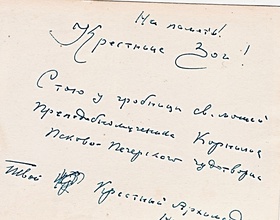 На память!
Крестнице Зои!
Стою у гробницы св. мощей
Преподобномученика Корнилия
Псково-Печерского чудотворца
Твой
Крестный Архима